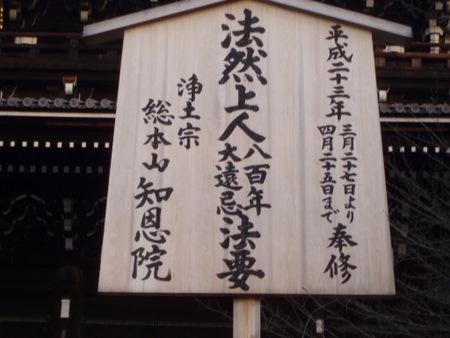 平成二十三年
三月二十七日より
四月二十五日まで
奉修
法然上人
八百年
大遠忌
法要
浄土宗
総本山
知恩院